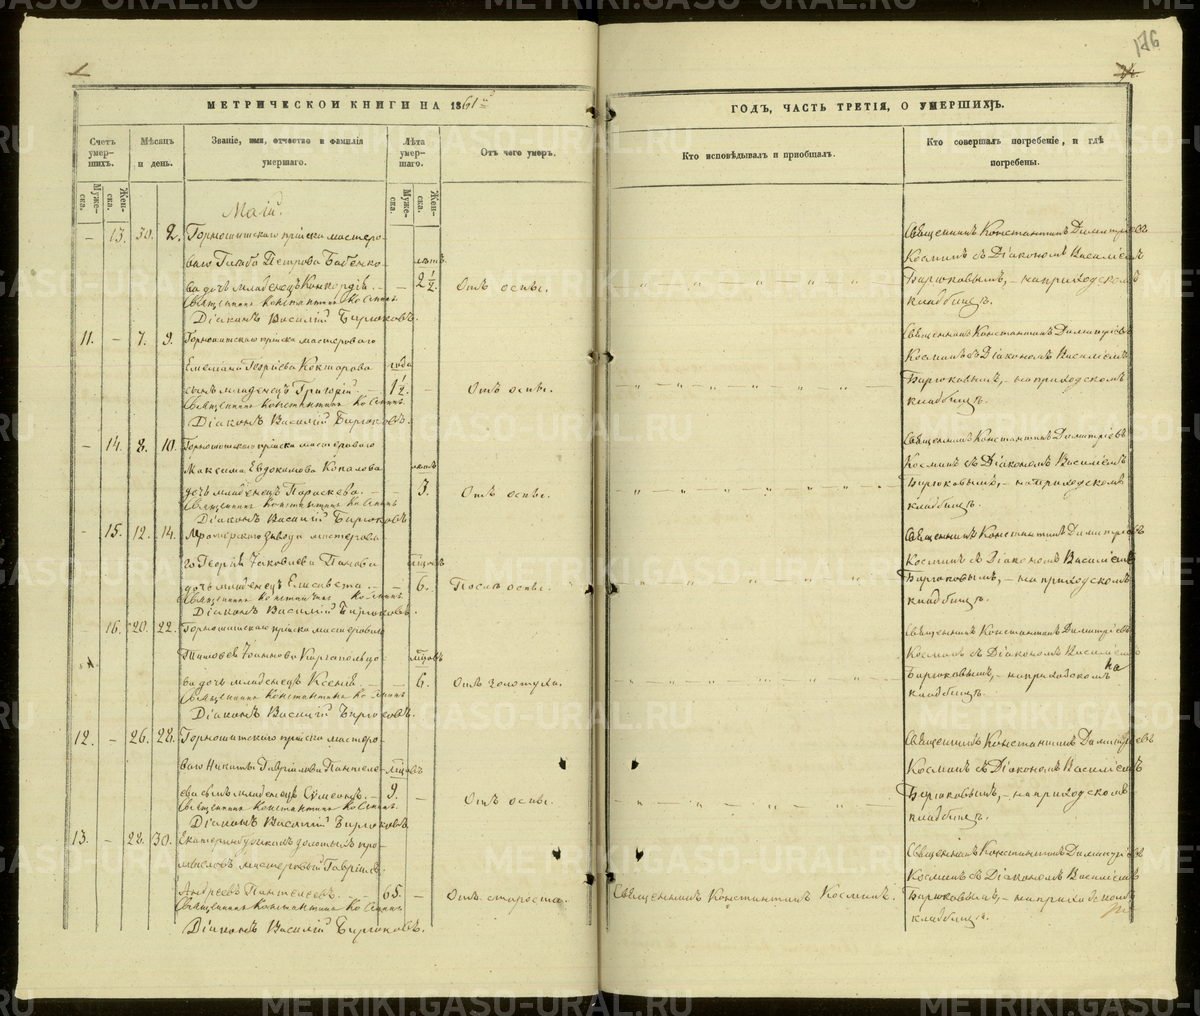 176
МЕТРИЧЕСКОЙ КНИГИ НА 1861й
ГОДЪ, ЧАСТЬ ТРЕТІЯ, О УМЕРШИХЪ.
Счетъ умер-шихъ.
Муже-ска.
Жен-ска.
Мѣсяцъ и день.
Званіе, имя, отчество и фамилія умершаго.
Лѣта умер-шаго.
Муже-ска.
Жен-ска.
Отъ чего умеръ.
Кто исповѣдывалъ и пріобщалъ.
Кто совершалъ погребеніе, и гдѣ погребены.
Маій.
– 13. 30. 2. Горнощитскаго пріиска мастеро-
ваго Петрова лѣтъ
ва дочь младенецъ Конкордія. – – 2 1/2. Отъ оспы.
Священникъ Константинъ Косминъ
Діаконъ Василій Бирюковъ.
Священникъ Константинъ Димитріевъ
Косминъ съ Діакономъ Василіемъ
Бирюковымъ, – на приходскомъ
кладбищѣ.
11. – 7. 9. Горнощитскаго пріиска мастероваго
Георгіева года
сынъ младенецъ Григорій. – 1 1/2. – Отъ оспы.
Священникъ Константинъ Косминъ
Діаконъ Василій Бирюковъ.
Священникъ Константинъ Димитріевъ
Косминъ съ Діакономъ Василіемъ
Бирюковымъ, – на приходскомъ
кладбищѣ.
– 14. 8. 10. Горнощитскаго пріиска мастероваго
Максима Евдокимова Копалова лѣтъ
дочь младенецъ Параскева. – – 3. Отъ оспы.
Священникъ Константинъ Косминъ
Діаконъ Василій Бирюковъ
Священникъ Константинъ Димитріевъ
Косминъ съ Діакономъ Василіемъ
Бирюковымъ, – на приходскомъ
кладбищѣ.
– 15. 12. 14. завода мастерова-
го Георгія Іаковлева мѣсяцъ
дочь младенецъ Елисавета. – – 6. Послѣ оспы.
Священникъ Константинъ Косминъ
Діаконъ Василій Бирюковъ
Священникъ Константинъ Димитріевъ
Косминъ съ Діакономъ Василіемъ
Бирюковымъ, – на приходскомъ
кладбищѣ.
– 16. 20. 22. Горнощитскаго пріиска мастероваго
Іоаннова Каргапольцо- мѣсяцовъ
ва дочь младенецъ Ксенія. – – 6. Отъ золотухи.
Священникъ Константинъ Косминъ
Діаконъ Василій Бирюковъ.
Священникъ Константинъ Димитріевъ
Косминъ съ Діакономъ Василіемъ
Бирюковымъ, – на приходскомъ
кладбищѣ.
12. – 26. 28. Горнощитскаго пріиска мастеро-
ваго Никиты Гавріилова Пантеле- мѣсяцовъ
ева сынъ младенецъ Сумеонъ. – 9. – Отъ оспы.
Священникъ Константинъ Косминъ
Діаконъ Василій Бирюковъ
Священникъ Константинъ Димитріевъ
Косминъ съ Діакономъ Василіемъ
Бирюковымъ, – на приходскомъ
кладбищѣ.
13. – 28. 30. Екатеринбургскихъ золотыхъ про-
мысловъ мастеровый Гавріилъ
Андреевъ Пантелеевъ. – 65. – Отъ старости.
Священникъ Константинъ Косминъ
Діаконъ Василій Бирюковъ.
Священникъ Константинъ Косминъ.
Священникъ Константинъ Димитріевъ
Косминъ съ Діакономъ Василіемъ
Бирюковымъ, – на приходскомъ
кладбищѣ.
METRIKI.GASO-URAL.RU